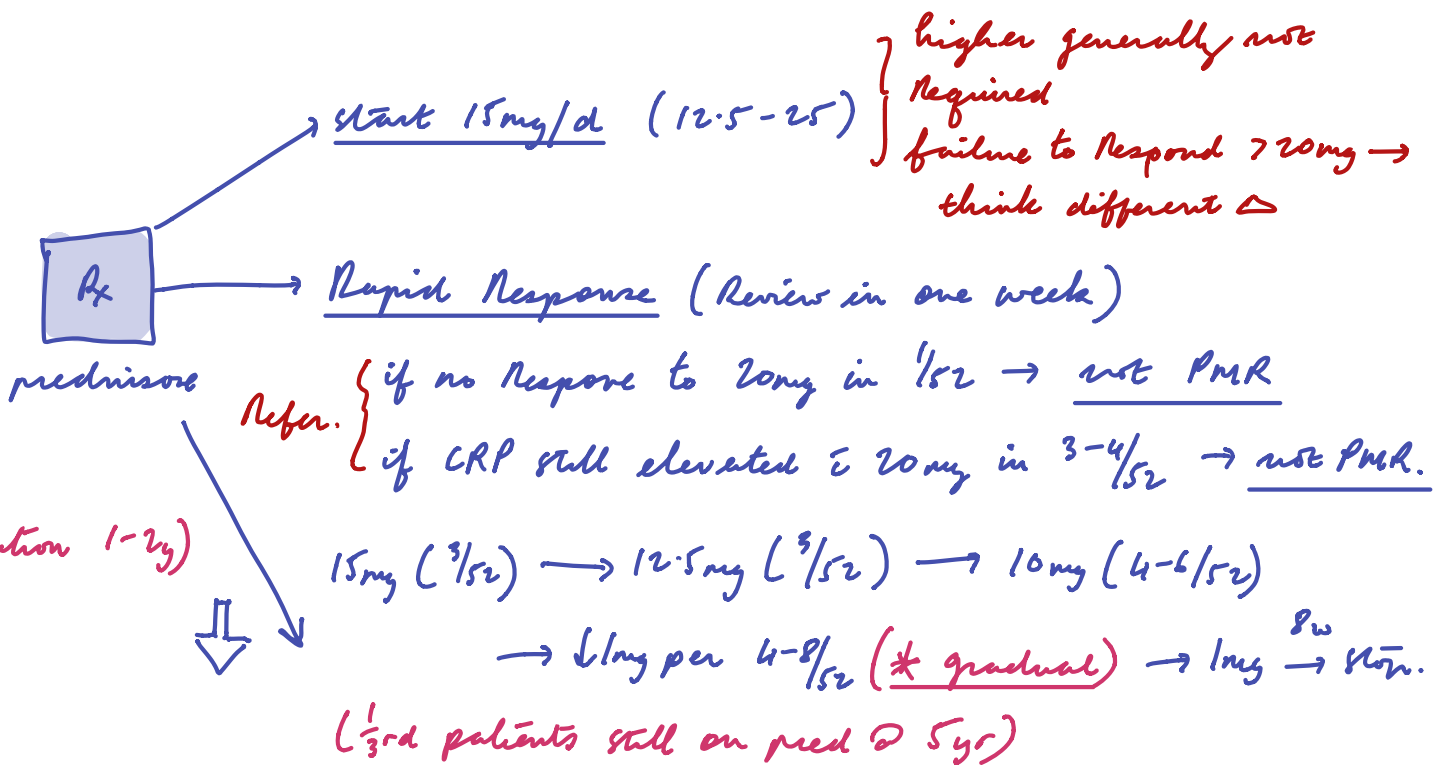 higher generally not
required
start 15mg/d (12.5-25)
failure to respond >20mg →
think different △
Rx
prednisone
Rapid Response (Review in one week)
Refer.
if no respone to 20mg in 1/52 → not PMR
if CRP still elevated c̄ 20mg in 3-4/52 → not PMR.
1-2y)
15mg (3/52) → 12.5mg (3/52) → 10mg (4-6/52)
→ ↓1mg per 4-8/52 (* gradual) → 1mg 8w → stop.
(1/3rd patients still on pred @ 5yr)